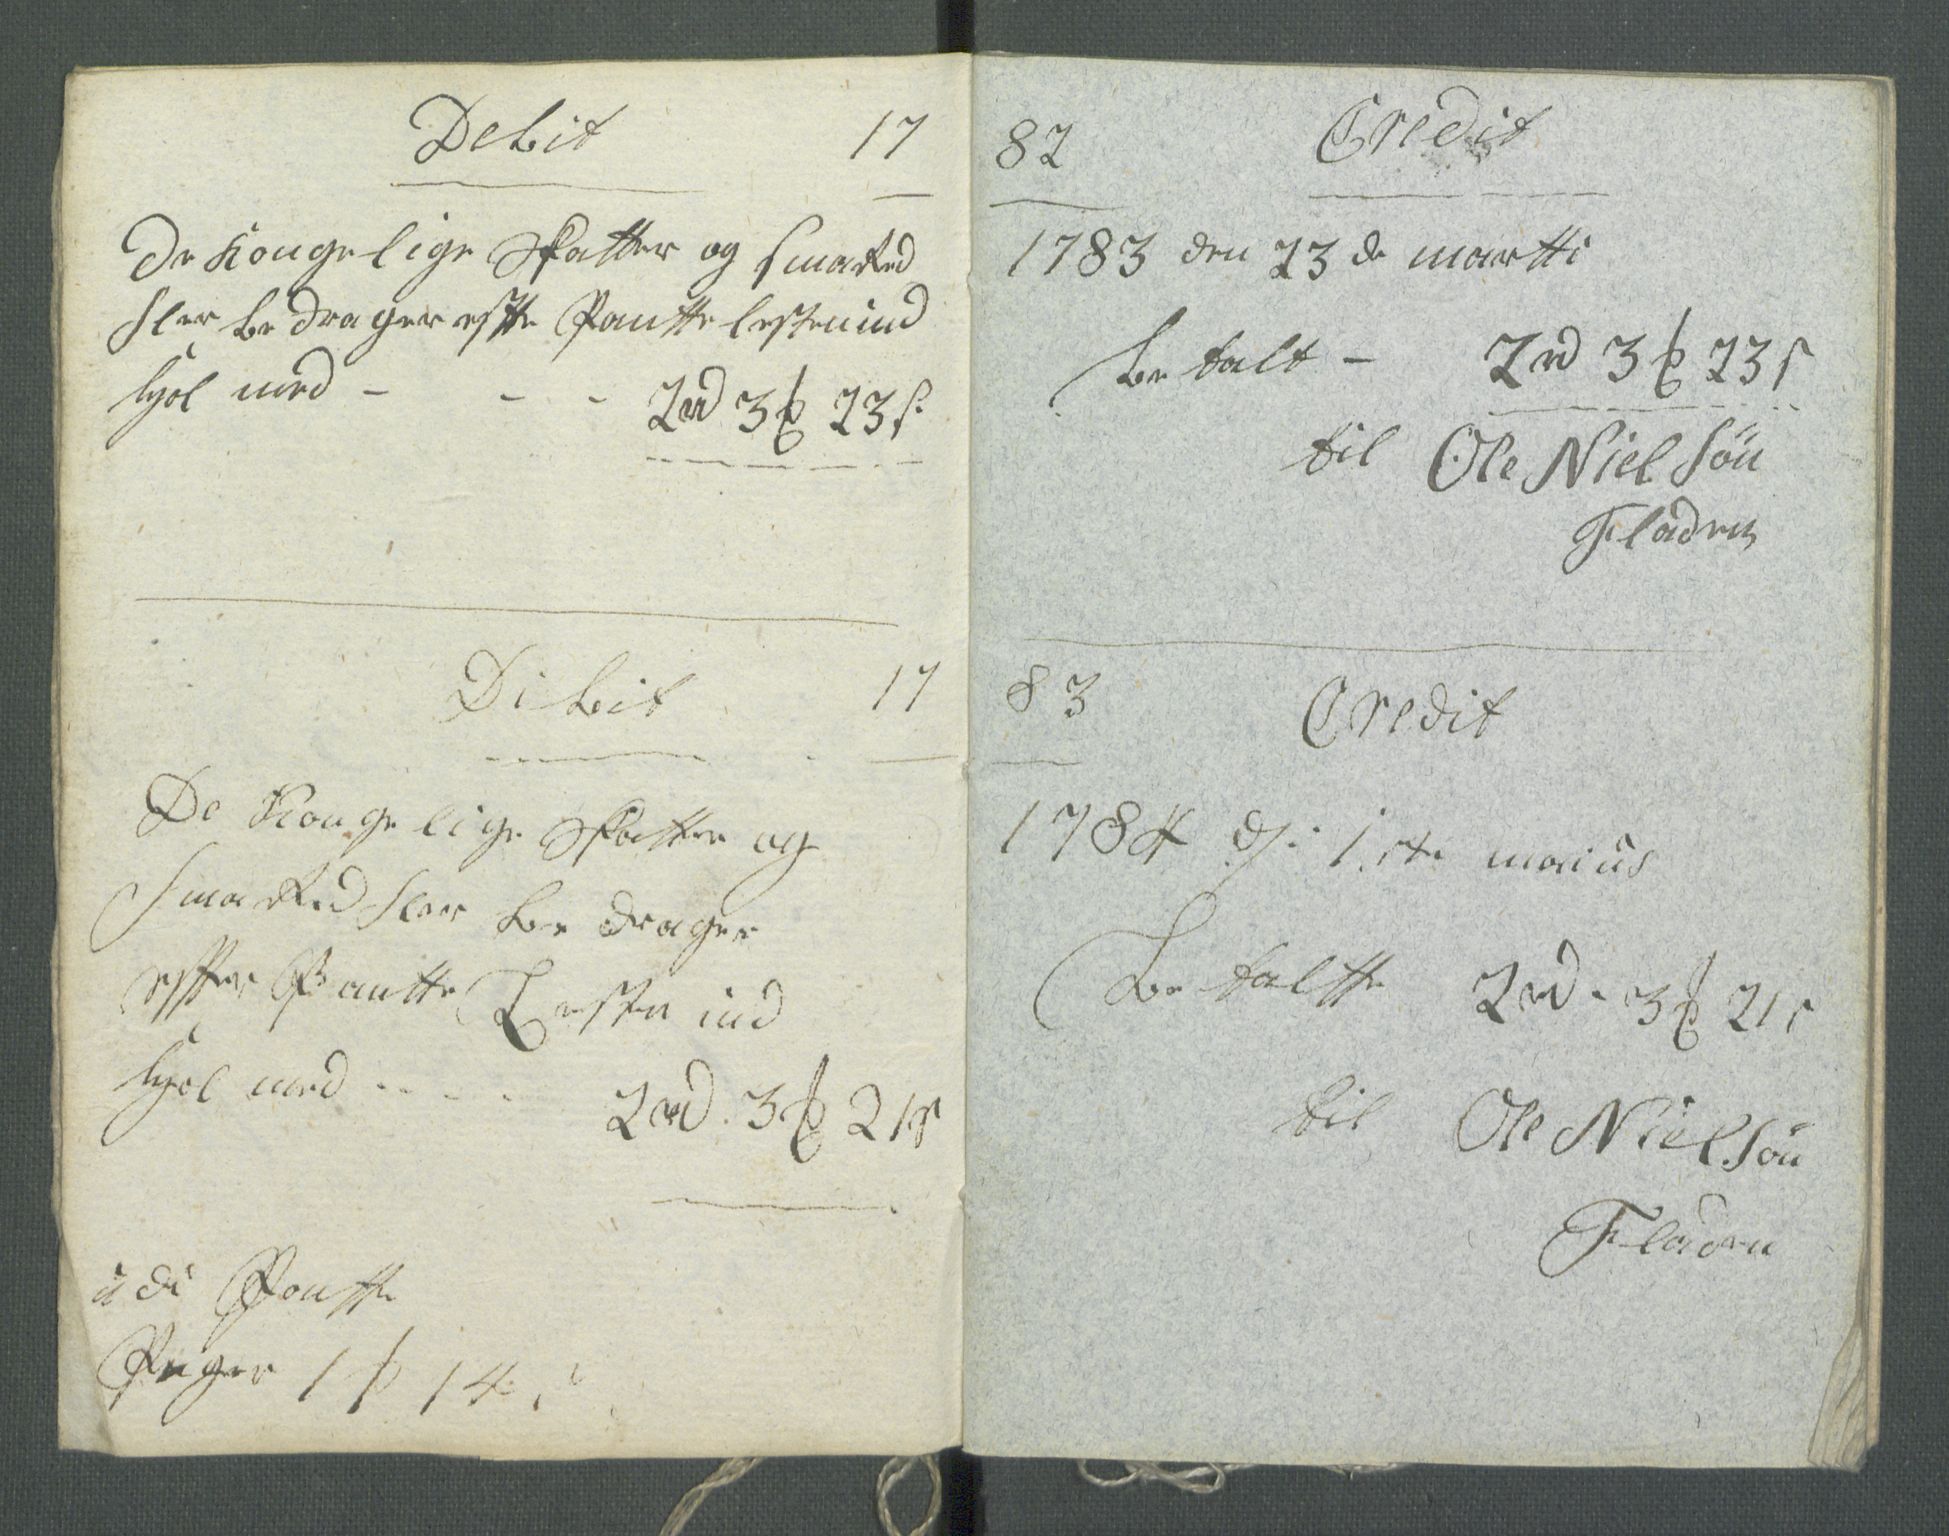 Debit 17
De Kongelige Skatter og smaa Red
sler be drager efter Pantte lesten ind
Hol med - - - 2 rd 3 ß 23 s
Debit 17
De Konge lige Skatter og
Smaa Red sler be drager
effter Pantte Lesten ind
Hol med - - - 2 rd. 3 ß 21 s
Pontte
Penger 1 14
82 Credit
1783 den 23 de martti
be talt - 2 rd 3 ß 23 s
til Ole Niel Søn
Fladen
83 Credit
1784 d: 1 ste maius
be taltte 2 rd - 3 ß 21 s
til Ole Niel Søn
Fladen